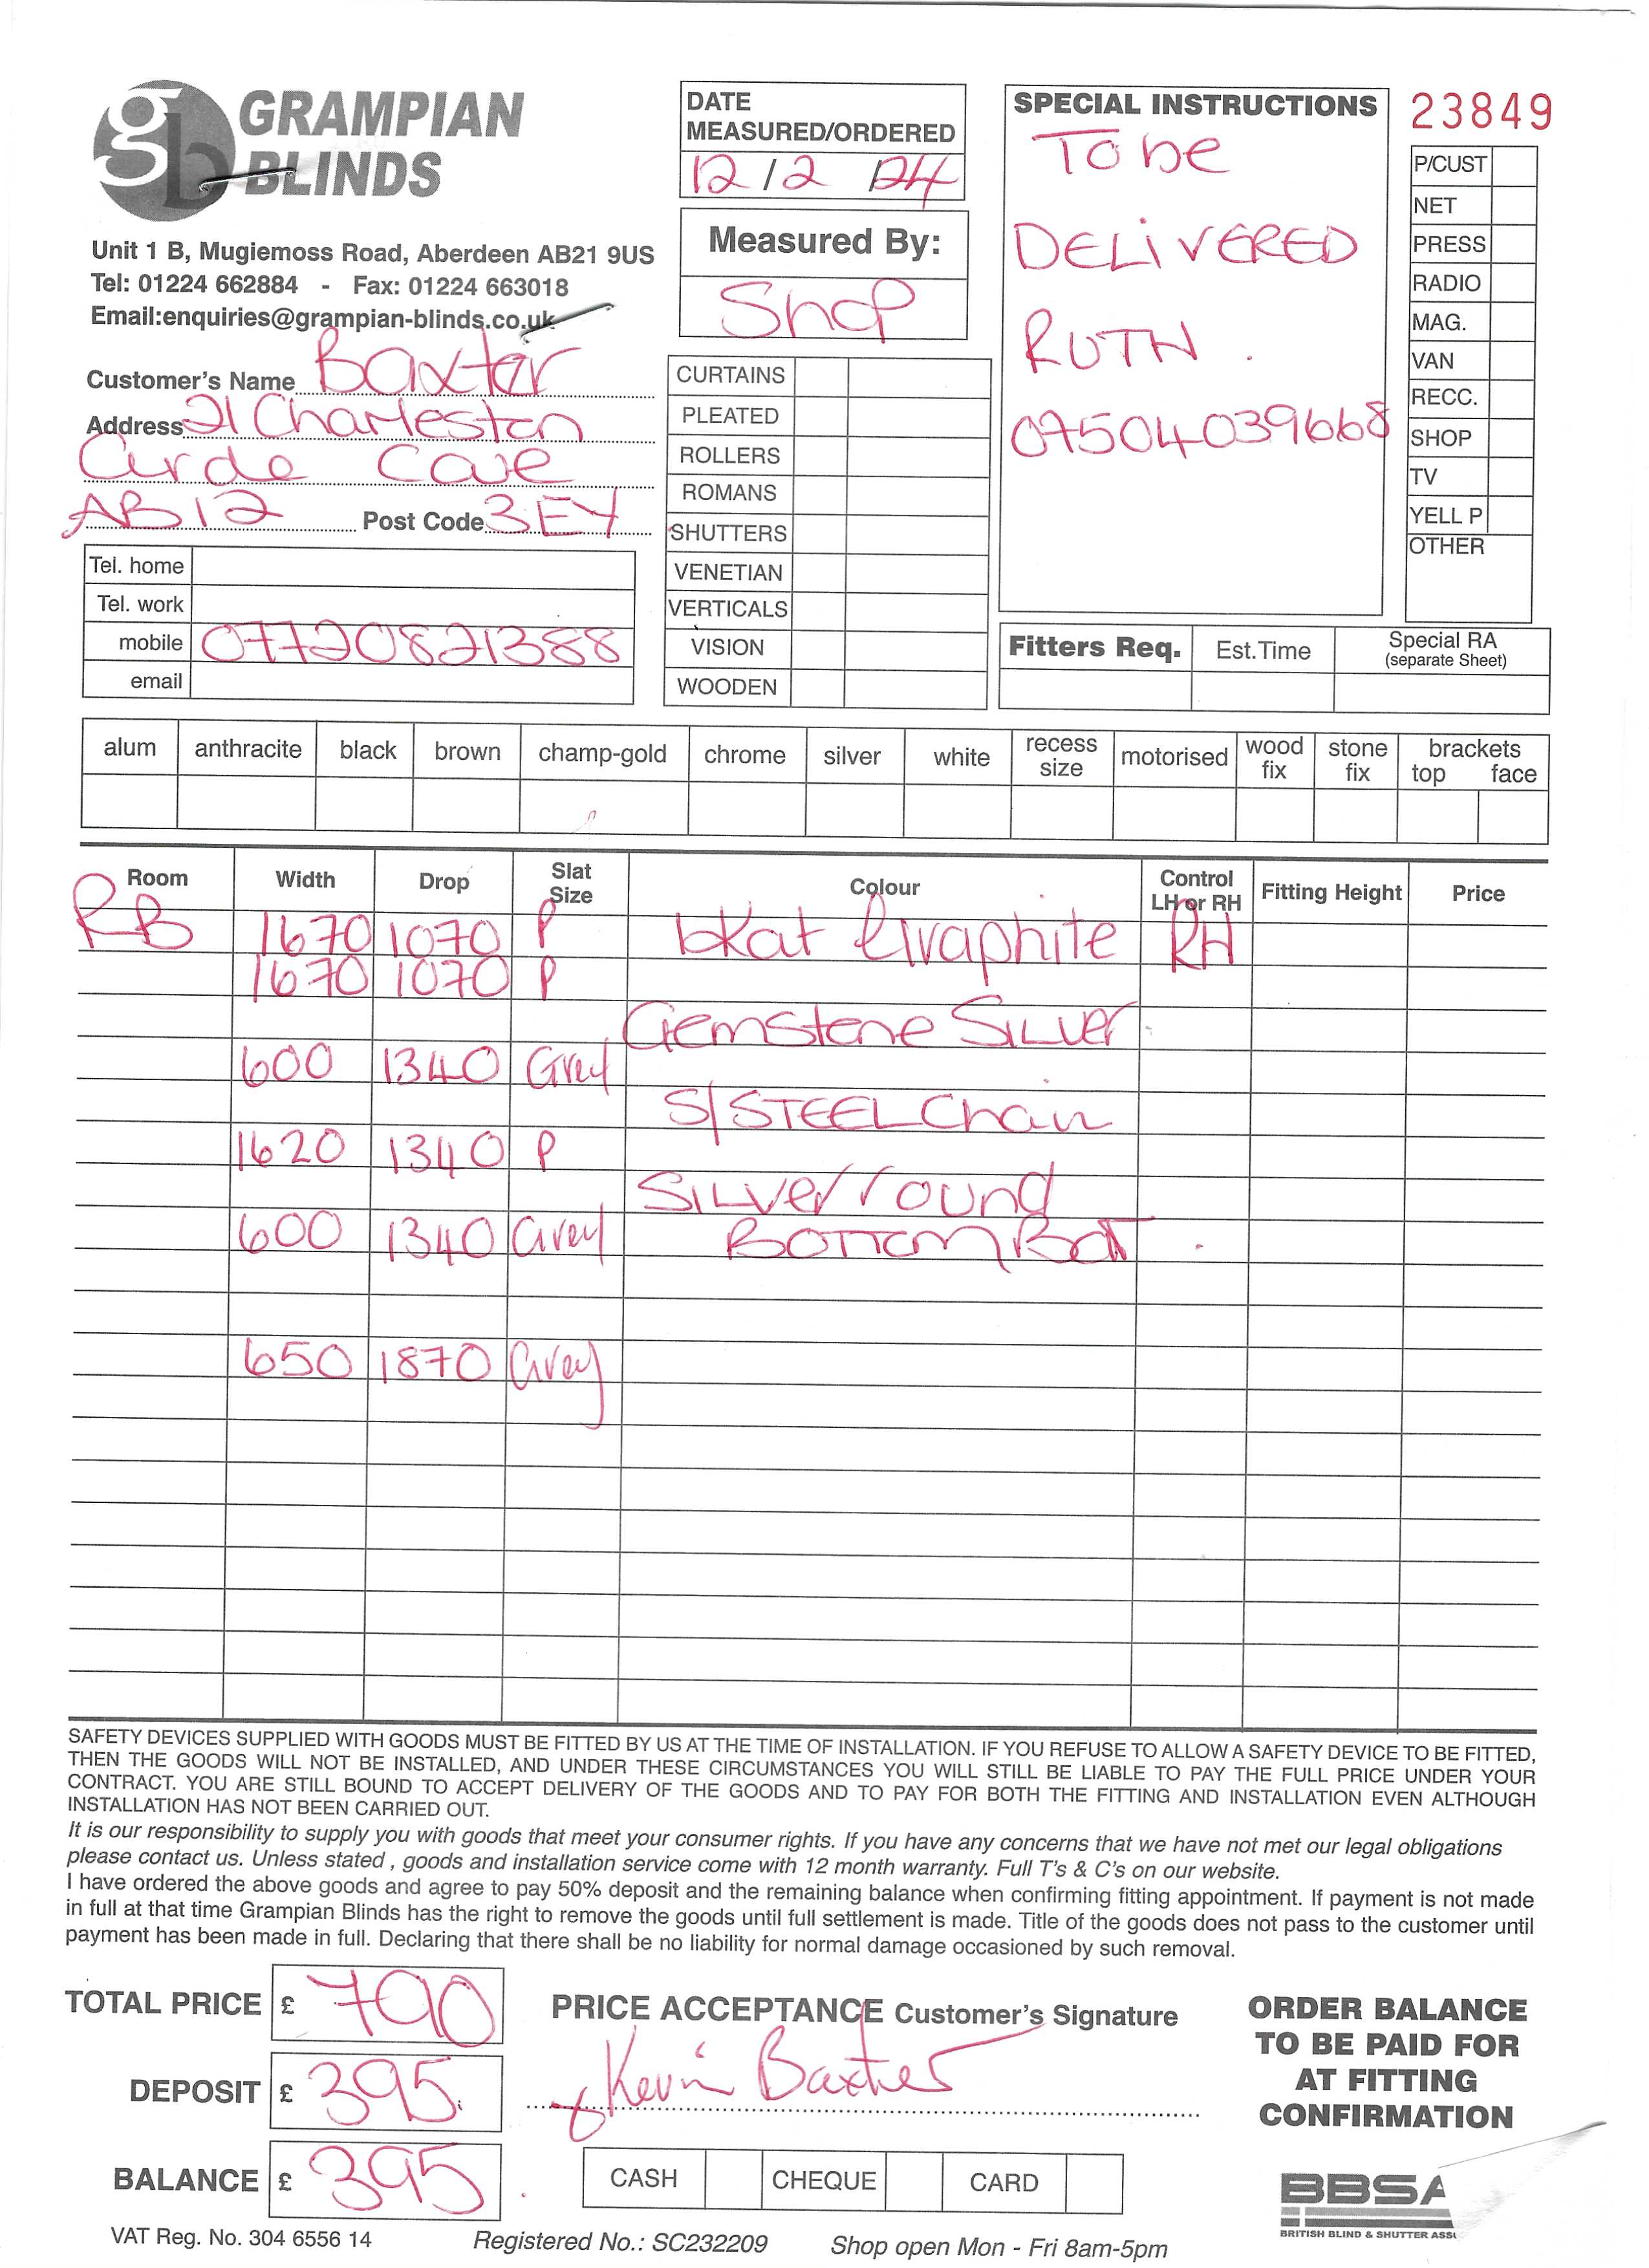 GRAMPIAN
BLINDS
Unit 1 B, Mugiemoss Road, Aberdeen AB21 9US
Tel: 01224 662884 - Fax: 01224 663018
Email:enquiries@grampian-blinds.co.uk
Customer's Name Baxter
Address 21 Charleston
Circle Cove
AB12 Post Code 3EY
Tel. home
Tel. work
mobile 07720821388
email
DATE
MEASURED/ORDERED
12/2/24
Measured By:
Shop
CURTAINS
PLEATED
ROLLERS
ROMANS
SHUTTERS
VENETIAN
VERTICALS
VISION
WOODEN
SPECIAL INSTRUCTIONS
To be
DELiVERED
RUTH.
07504039668
23849
P/CUST
NET
PRESS
RADIO
MAG.
VAN
RECC.
SHOP
TV
YELL P
OTHER
Fitters Req. Est.Time Special RA
(separate Sheet)
alum anthracite black brown champ-gold chrome silver white recess size motorised wood fix stone fix brackets top face
Room Width Drop Slat Size Colour Control LH or RH Fitting Height Price
RB 1670 1070 P Ikat Graphite RH
1670 1070 P
Gemstone Silver
600 1340 Grey
S/STEEL Chain
1620 1340 P
Silver round
600 1340 Grey Bottom Bar
650 1870 Grey
SAFETY DEVICES SUPPLIED WITH GOODS MUST BE FITTED BY US AT THE TIME OF INSTALLATION. IF YOU REFUSE TO ALLOW A SAFETY DEVICE TO BE FITTED,
THEN THE GOODS WILL NOT BE INSTALLED, AND UNDER THESE CIRCUMSTANCES YOU WILL STILL BE LIABLE TO PAY THE FULL PRICE UNDER YOUR
CONTRACT. YOU ARE STILL BOUND TO ACCEPT DELIVERY OF THE GOODS AND TO PAY FOR BOTH THE FITTING AND INSTALLATION EVEN ALTHOUGH
INSTALLATION HAS NOT BEEN CARRIED OUT.
It is our responsibility to supply you with goods that meet your consumer rights. If you have any concerns that we have not met our legal obligations
please contact us. Unless stated , goods and installation service come with 12 month warranty. Full T's & C's on our website.
I have ordered the above goods and agree to pay 50% deposit and the remaining balance when confirming fitting appointment. If payment is not made
in full at that time Grampian Blinds has the right to remove the goods until full settlement is made. Title of the goods does not pass to the customer until
payment has been made in full. Declaring that there shall be no liability for normal damage occasioned by such removal.
TOTAL PRICE £ 790
DEPOSIT £ 395
BALANCE £ 395
PRICE ACCEPTANCE Customer's Signature
Kevin Baxter
CASH CHEQUE CARD
ORDER BALANCE
TO BE PAID FOR
AT FITTING
CONFIRMATION
BBSA
BRITISH BLIND & SHUTTER ASS
VAT Reg. No. 304 6556 14 Registered No.: SC232209 Shop open Mon - Fri 8am-5pm